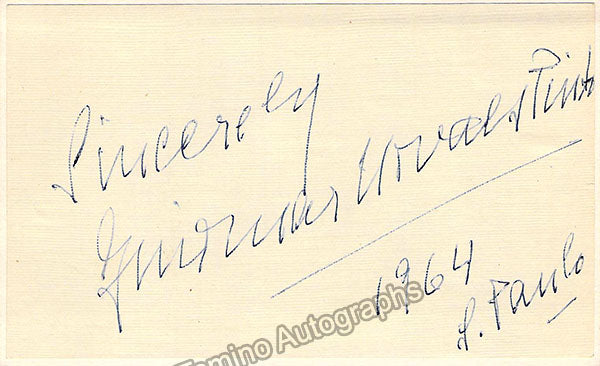 Sincerely
Guiomar Novaes Pinto
1964
S. Paulo
Tamino Autographs